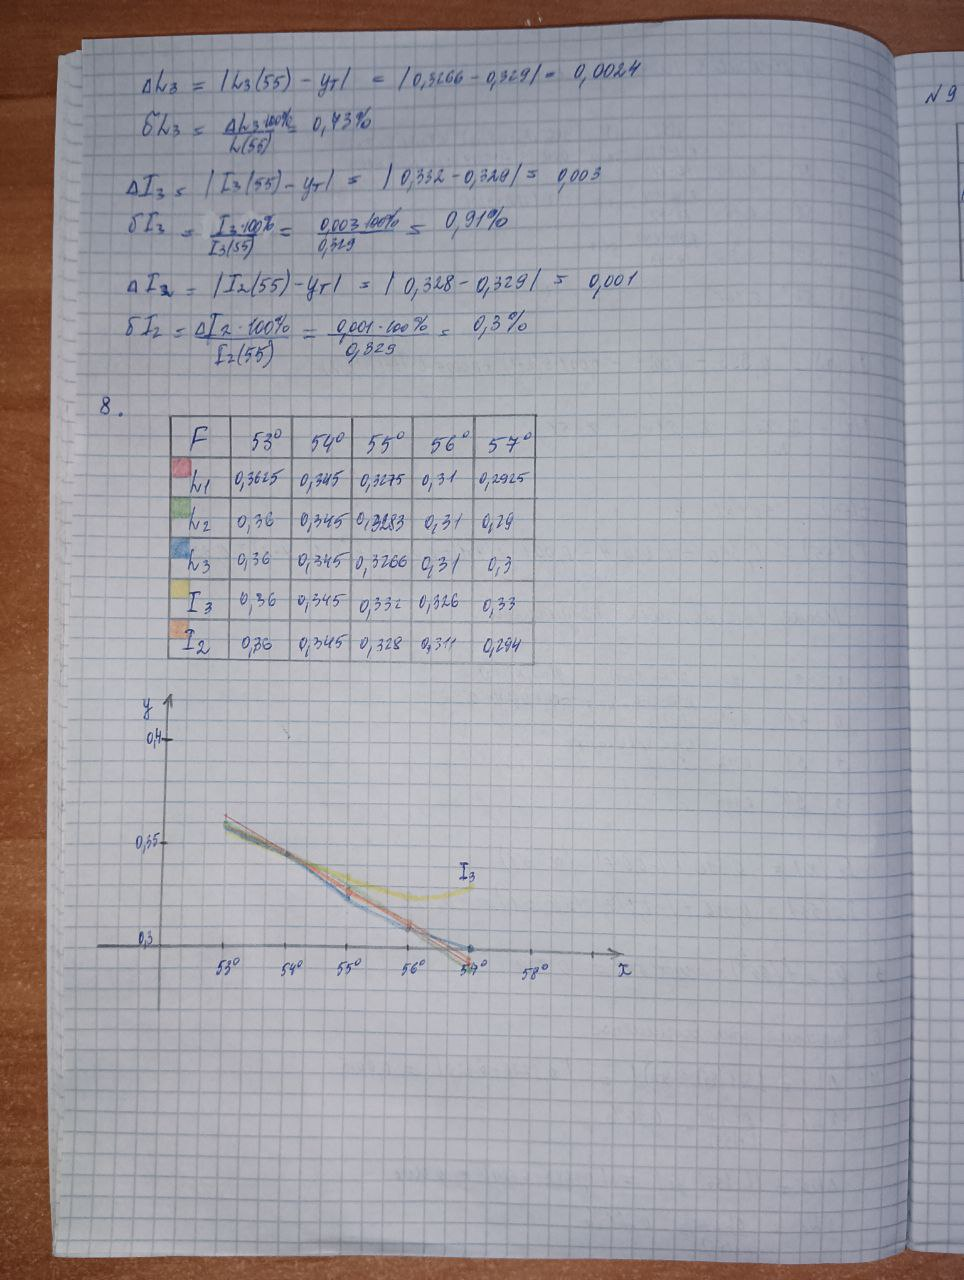 ΔL3 = |L3(55) - yT| = |0,3266 - 0,329| = 0,0024
δL3 = ΔL3·100% / L(55) = 0,73%
ΔI3 = |I3(55) - yT| = |0,332 - 0,329| = 0,003
δI3 = I3·100% / I3(55) = 0,003·100% / 0,329 = 0,91%
ΔI2 = |I2(55) - yT| = |0,328 - 0,329| = 0,001
δI2 = ΔI2·100% / I2(55) = 0,001·100% / 0,329 = 0,3%
№9
8.
F 53° 54° 55° 56° 57°
L1 0,3625 0,345 0,3275 0,31 0,2925
L2 0,36 0,345 0,3283 0,31 0,29
L3 0,36 0,345 0,3266 0,31 0,3
I3 0,36 0,345 0,332 0,326 0,33
I2 0,36 0,345 0,328 0,311 0,294
y
0,4
0,35
I3
0,3
53° 54° 55° 56° 57° 58° x